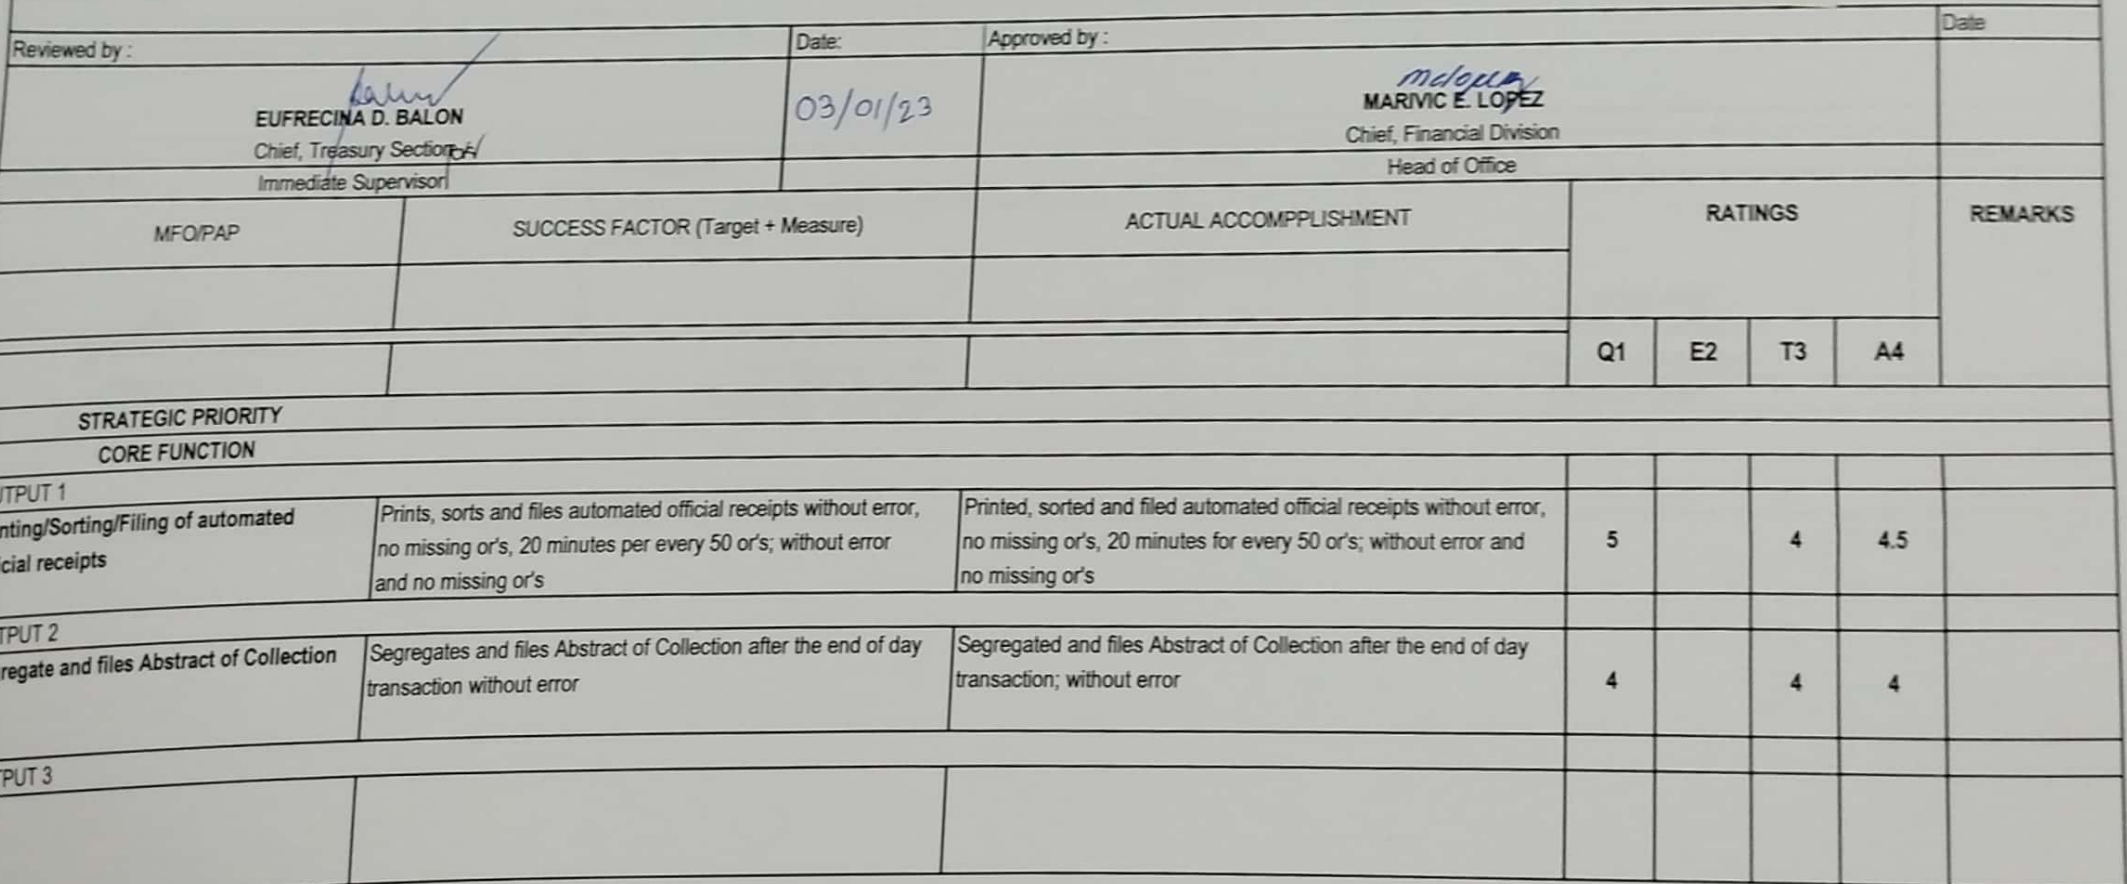 Reviewed by : Date: Approved by : Date
EUFRECINA D. BALON 03/01/23 MARIVIC E. LOPEZ
Chief, Treasury Section Chief, Financial Division
Immediate Supervisor Head of Office
MFO/PAP SUCCESS FACTOR (Target + Measure) ACTUAL ACCOMPPLISHMENT RATINGS REMARKS
Q1 E2 T3 A4
STRATEGIC PRIORITY
CORE FUNCTION
TPUT 1
nting/Sorting/Filing of automated
cial receipts
Prints, sorts and files automated official receipts without error,
no missing or's, 20 minutes per every 50 or's; without error
and no missing or's
Printed, sorted and filed automated official receipts without error,
no missing or's, 20 minutes for every 50 or's; without error and
no missing or's
5 4 4.5
TPUT 2
regate and files Abstract of Collection
Segregates and files Abstract of Collection after the end of day
transaction without error
Segregated and files Abstract of Collection after the end of day
transaction; without error
4 4 4
PUT 3